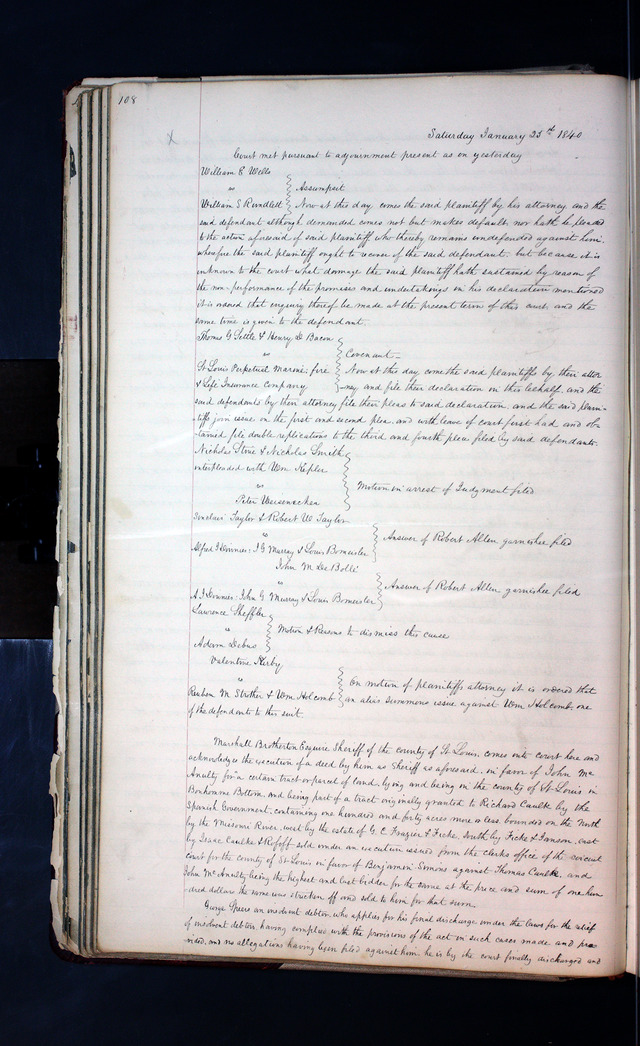 108
Saturday January 25th 1840
Court met pursuant to adjournment present as on yesterday
William C Wells
vs
Assumpsit
William S Rundlett
Now at this day comes the said plaintiff by his attorney and the
said defendant although demanded comes not but makes default nor hath he pleaded
to the action aforesaid of said plaintiff who thereby remains undefended against him.
wherefore the said plaintiff ought to recover of the said defendant. but because it is
unknown to the court what damage the said plaintiff hath sustained by reason of
the non-performance of the promises and undertakings in his declaration mentioned
it is ordered that enquiry thereof be made at the present term of this court. and the
same time is given to the defendant.
Thomas G Settle & Henry D Bacon
vs
Covenant
St Louis Perpetual Marine, fire
Now at this day come the said plaintiffs by their attor
& Life Insurance Company
ney and file their declaration in this behalf. and the
said defendants by their attorney file their pleas to said declaration, and the said plain-
tiffs join issue on the first and second plea, and with leave of court first had and ob
tained file double replications to the third and fourth pleas filed by said defendants.
Nicholas Stine & Nicholas Smith
interpleaded with Wm Kepler
vs
Motion in arrest of Judgment filed
Peter Weisenecken
Sinclair Taylor & Robert W Taylor
vs
Answer of Robert Allen garnishee filed
Alfred J Deviniers: J G Murray & Louis Bomeisler
John M De Bolle
vs
Answer of Robert Allen garnishee filed
A. J. Deviniers: John G Murray & Louis Bomeisler
Lawrence Sheffler
vs
Motion & Reasons to dismiss this cause
Adam Debus
Valentine Kirby
vs
On motion of plaintiffs attorney it is ordered that
Reuben M. Strother & Wm Holcomb
an alias summons issue against Wm Holcomb one
of the defendants to this suit
Marshall Brotherton Esquire Sheriff of the county of St Louis, comes into court here and
acknowledges the execution of a deed by him as Sheriff as aforesaid, in favor of John Mc
Anulty for a certain tract or parcel of land, lying and being in the county of St Louis in
Bonhomme Bottom, and being part of a tract originally granted to Richard Caulk by the
Spanish Government, containing one hundred and forty acres more or less, bounded on the North
by the Missouri River, west by the estate of G. C. Frazier & Ficke, South by Ficke & Janson, east
by Isaac Caulke & sold under an execution issued from the clerks office of the circuit
court for the county of St Louis in favor of Benjamin Emmons against Thomas Caulk, and
John McAnulty being the highest and last bidder for the same at the price and sum of one hun
dred dollars the same was stricken off and sold to him for that sum.
George Speers an insolvent debtor, who applies for his final discharge under the laws for the relief
of insolvent debtors having complied with the provisions of the act in such cases made and pro
vided, and no allegations having been filed against him, he is by the court finally discharged and